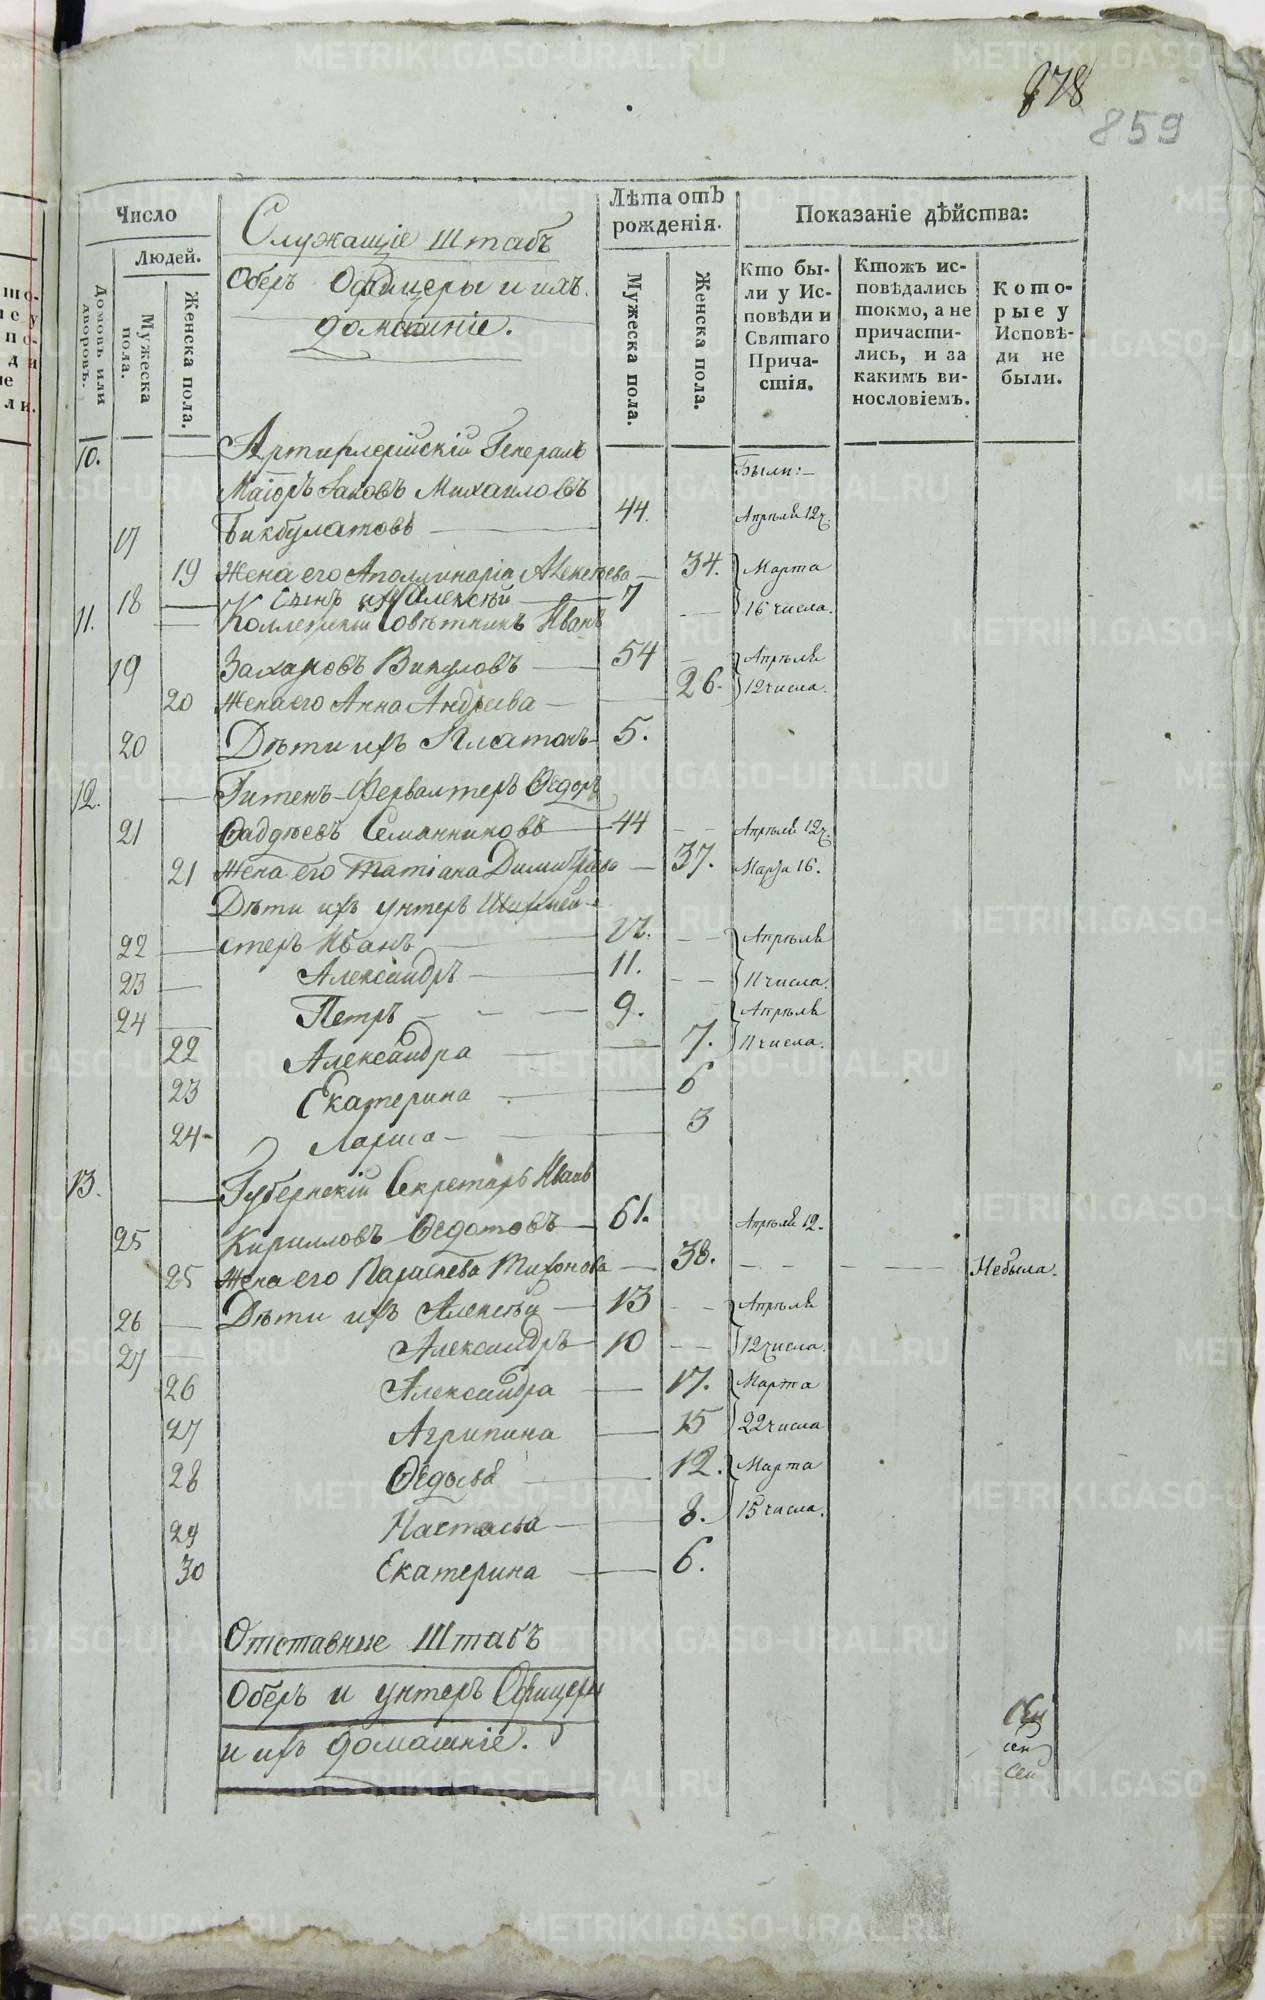 878
859
Число
Людей.
Домовъ или дворовъ.
Мужеска пола.
Женска пола.
Служащіе Штабъ
Оберъ Офицеры и ихъ
домашніе.
Лѣта отъ рожденія.
Мужеска пола.
Женска пола.
Показаніе дѣйства:
Кто были у Исповѣди и Святаго Причастія.
Ктожъ исповѣдались токмо, а не причастились, и за какимъ винословіемъ.
Которые у Исповѣди не были.
10. Артиллерійскій Генералъ
Маіоръ Іаковъ Михаиловъ Были:
17 Бикбулатовъ 44. Апрѣля 12ч.
19 Жена его Аполлинарія Алексѣева 34. Марта
18 Сынъ ихъ Алексѣй 7 16 числа.
11. Коллежскій Совѣтникъ Иванъ
19 Захаровъ Викуловъ 54 Апрѣля
20 Жена его Анна Андреева 26. 12 числа.
20 Дѣти ихъ Платонъ 5.
12. Гитенъ-Фервалтеръ Ѳедоръ
21 Ѳаддѣевъ Семянниковъ 44 Апрѣля 12ч.
21 Жена его Татіана Димитріева 37. Марта 16.
Дѣти ихъ унтеръ Шихмей-
22 стеръ Иванъ Апрѣля
23 Александръ 11. 11 числа.
24 Петръ 9. Апрѣля
22 Александра 7. 11 числа.
23 Екатерина 6
24 Лариса 3
13. Губернскій Секретарь Иванъ
25 Кирилловъ Ѳедотовъ 61. Апрѣля 12.
25 Жена его Параскева Тихонова 38. Небыла.
26 Дѣти ихъ Алексѣй 13 Апрѣля
27 Александръ 10 12 числа.
26 Александра 17. Марта
27 Агрипина 15 22 числа
28 Ѳедосья 12. Марта
29 Настасья 8. 15 числа.
30 Екатерина 6.
Отставные Штабъ
Оберъ и унтеръ Офицеры
и ихъ домашніе.
METRIKI.GASO-URAL.RU